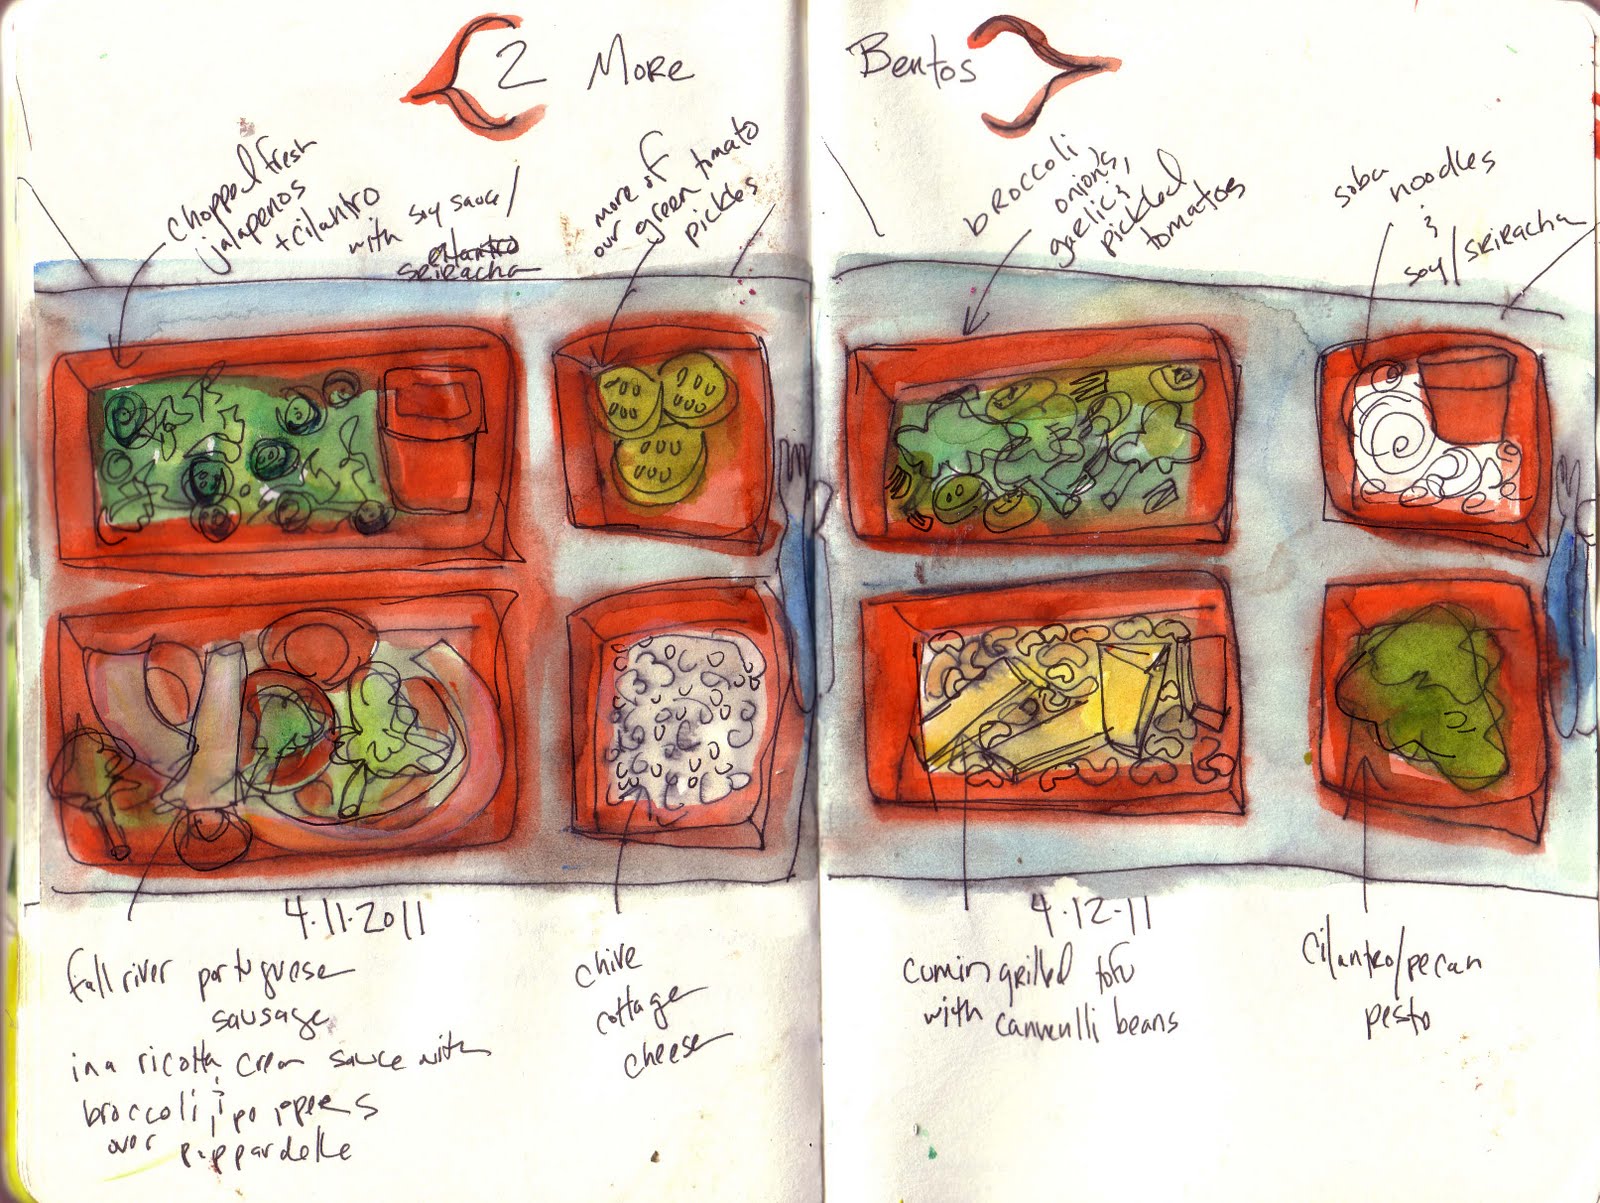 2 More Bentos
chopped fresh
jalapenos
+ cilantro
with soy sauce/
cilantro
sriracha
more of
our green tomato
pickles
broccoli
onions,
garlic &
pickled
tomatoes
soba noodles
&
soy/sriracha
4.11.2011
fall river portuguese
sausage
in a ricotta cream sauce with
broccoli, & peppers
over pappardelle
chive
cottage
cheese
4.12.11
cumin grilled tofu
with cannenlli beans
cilantro/pecan
pesto